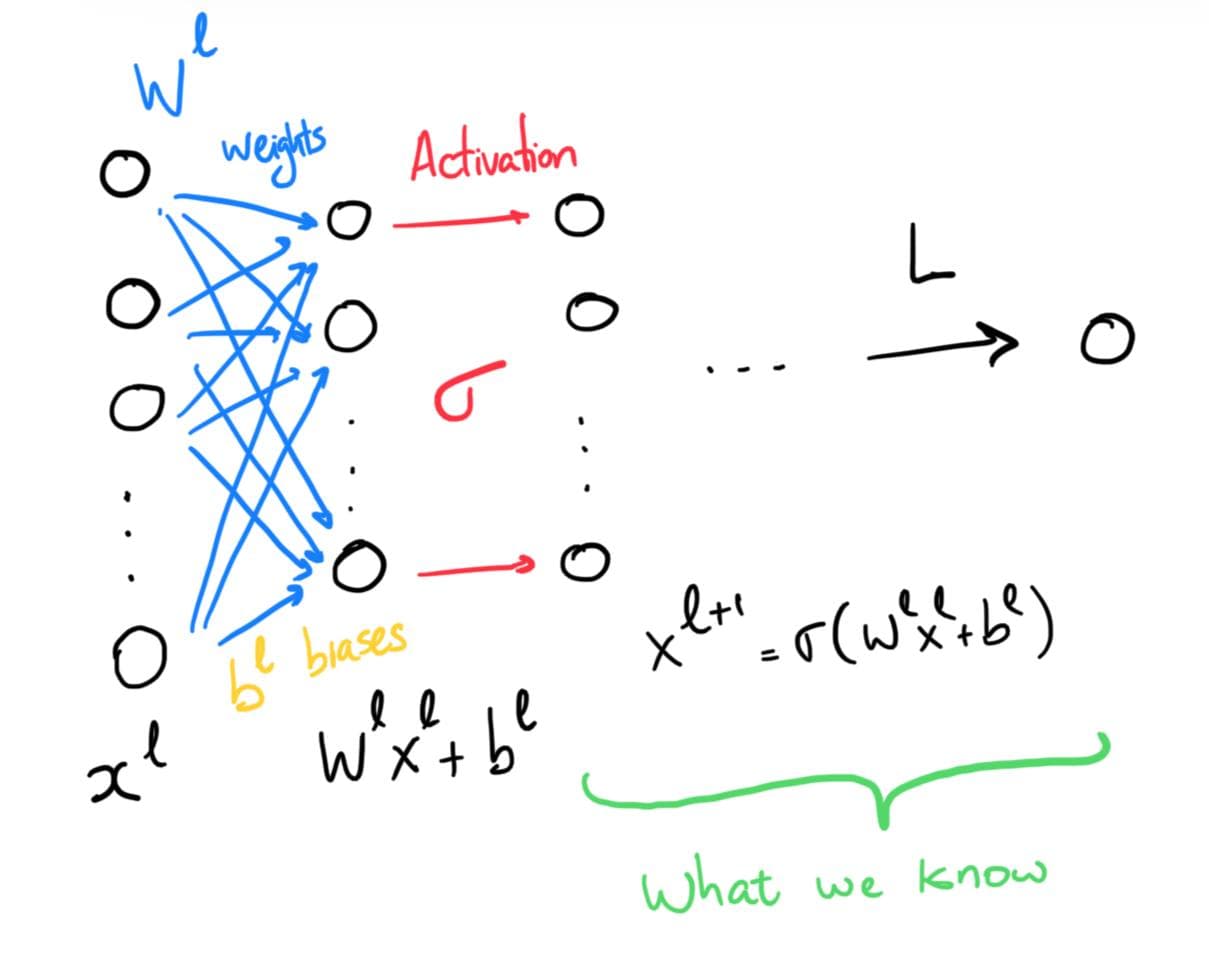 Wˡ
weights
Activation
L
σ
. . .
bˡ biases
xˡ⁺¹ = σ(Wˡxˡ+bˡ)
xˡ
Wˡxˡ+bˡ
What we know